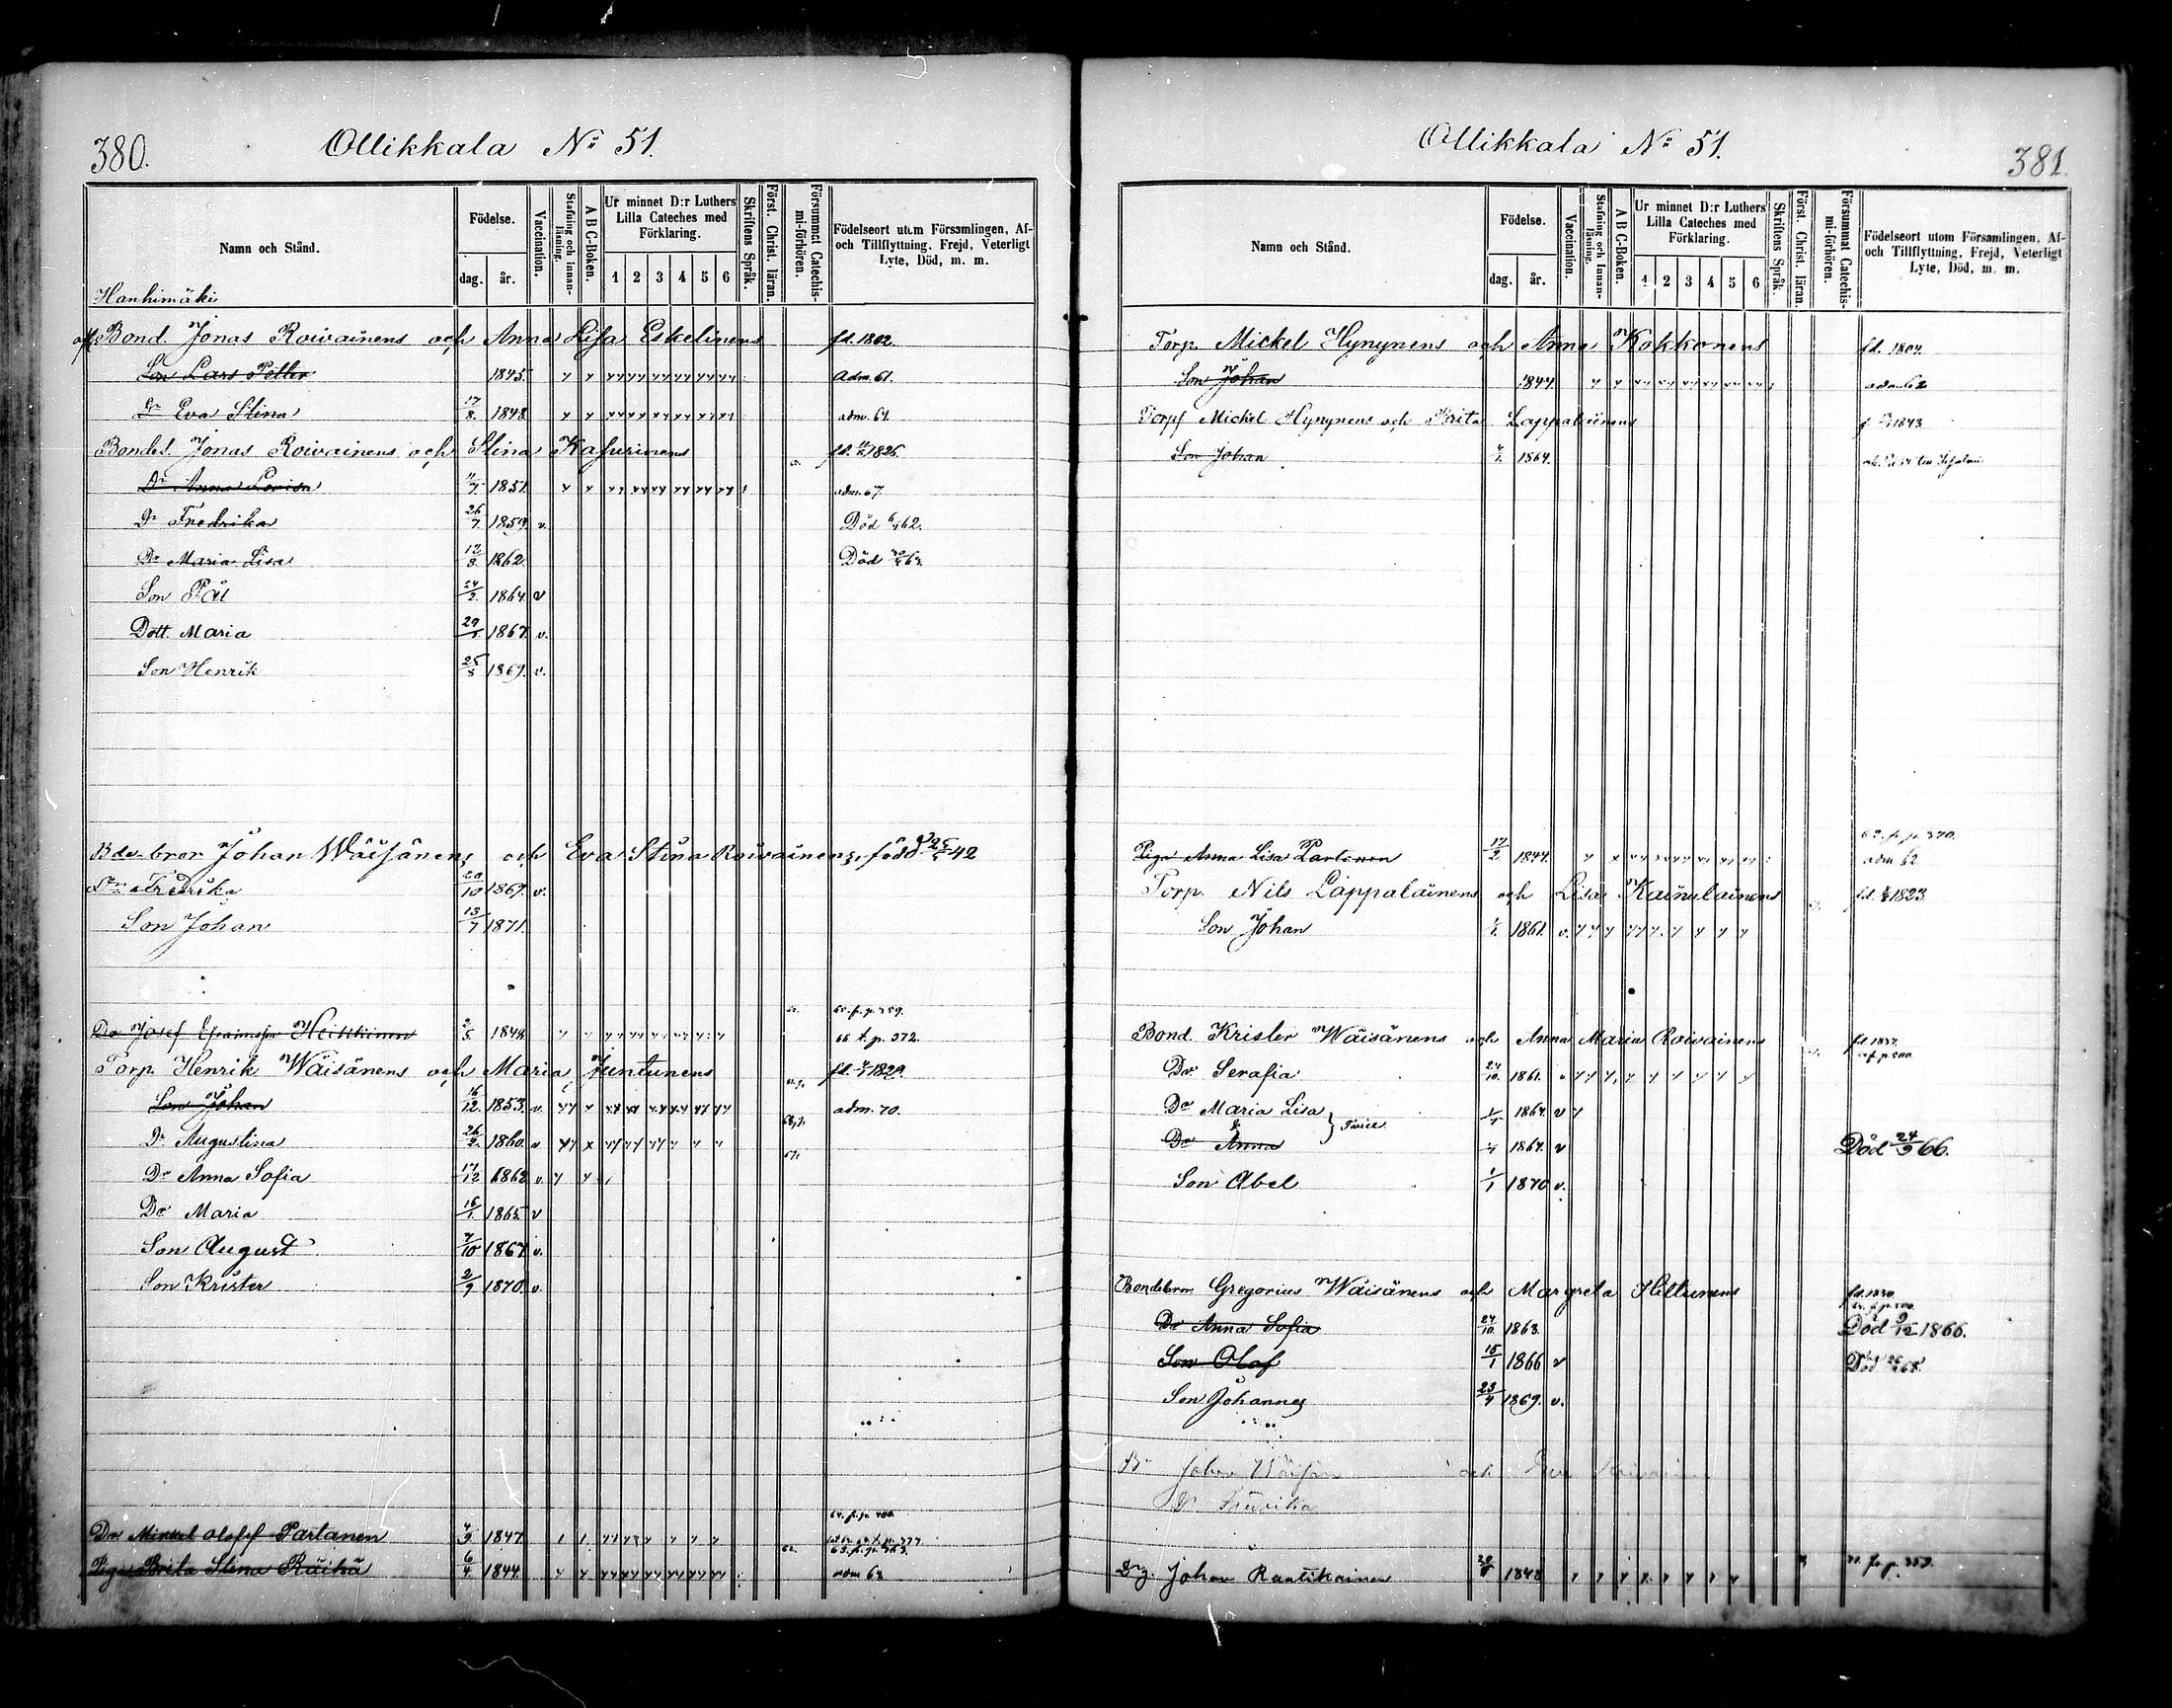 380.
Ollikkala No 51.
Namn och Stånd.
Födelse.
dag. år.
Vaccination.
Stafning och innan-läsning.
A B C-Boken.
Ur minnet D:r Luthers Lilla Cateches med Förklaring.
1 2 3 4 5 6
Skriftens Språk.
Först. Christ. läran.
Försummat Catechis-mi-förhören.
Födelseort utom Församlingen, Af- och Tillflyttning, Frejd, Veterligt Lyte, Död, m. m.
Hanhimäki
Bond. Jonas Roivainens och Anna Lisa Eskelinens fd. 1802.
Son Lars Petter 1845. adm. 61.
Dr Eva Stina 17/8. 1848. adm. 64.
Bondes. Jonas Roivainens och Stina Kasurinens 1826.
Dr Anna Lovisa 1851. adm. 67
Dr Fredrika 26/7. 1859. v. Död 62.
Dr Maria Lisa 12/8. 1862. Död
Son Pål 24/2. 1864. v
Dott. Maria 1867. v.
Son Henrik 25/8 1869. v.
Bde-bror Johan Wäisänens och Eva Stina Roivainens, född 42
Fredrika 20/10 1869. v.
Son Johan 13/7 1871.
65. f. p. 359.
Dr Josef Heiskinen 2/5. 1848 66 t. p. 372.
Torp. Henrik Wäisänens och Maria Juntunens 1829.
Son Johan 16/12. 1853. v. adm. 70.
Dr Augustina 26/2. 1860. v
Dr Anna Sofia 17/12 1862 v.
Dr Maria 1865. v
Son August 7/10 1867 v.
Son Krister 2/9 1870. v.
Dr Olofsf Partanen 4/9. 1847.
63. f. p. 363.
Piga Brita Stina Räihä 6/4. 1844 adm
381.
Ollikkala No 51.
Namn och Stånd.
Födelse.
dag. år.
Vaccination.
Stafning och innan-läsning.
A B C-Boken.
Ur minnet D:r Luthers Lilla Cateches med Förklaring.
1 2 3 4 5 6
Skriftens Språk.
Först. Christ. läran.
Försummat Catechis-mi-förhören.
Födelseort utom Församlingen, Af- och Tillflyttning, Frejd, Veterligt Lyte, Död, m. m.
Torp. Mickel Hynynens och Anna Kokkonens fd. 1804.
Son Johan 1844. adm 62
Torpf Mickel Hynynens och Brita Lappalainens 1843
Son Johan 1864.
Piga Anna Lisa Partanen 17/2. 1844. adm 62
Torp. Nils Lappalainens och Lisa Kainulainens 1823.
Son Johan 1861. v.
Bond. Krister Wäisänens och Anna Maria Roivainens
Dr Serafia 24/10. 1861.
Dr Maria Lisa 1864. v
Dr Anna 1864. v Död 24/9 66.
Son Abel 1/1 1870 v.
Bondebror Gregorius Wäisänens och Margreta Hiltunens
Dr Anna Sofia 24/10. 1863. Död 9/12 1866.
Son Olof 15/1 1866 v Död 68.
Son Johannes 23/4 1869. v.
Johan och
Dr Fredrika
Drg. Johan Raatikainen 1848 f. p. 359.